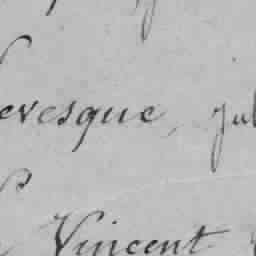 evesque, jul
Vincent